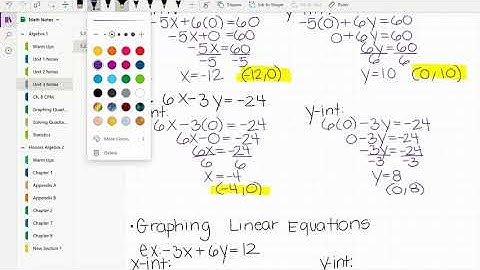 Math Notes
Algebra 1
Warm Ups
Unit 1 Notes
Unit 2 Notes
Unit 3 Notes
Ch. 8 CPM
Graphing Quad
Solving Quadra
Statistics
Honors Algebra 2
Warm Ups
Chapter 1
Appendix A
Appendix B
Chapter 2
Chapter 7
Chapter 9
New Section 1
More Colors
Delete
Ink to Shape
-5x+6(0)=60
-5x+0=60
-5x=60
-5 -5
x=-12 (-12,0)
-5(0)+6y=60
0+6y=60
6y=60
6 6
y=10 (0,10)
6x-3y=-24
int:
6x-3(0)=-24
6x-0=-24
6x=-24
6 6
x=-4
(-4,0)
y-int:
6(0)-3y=-24
0-3y=-24
-3y=-24
-3 -3
y=8
(0,8)
•Graphing Linear Equations
ex. -3x+6y=12
x-int: y-int: